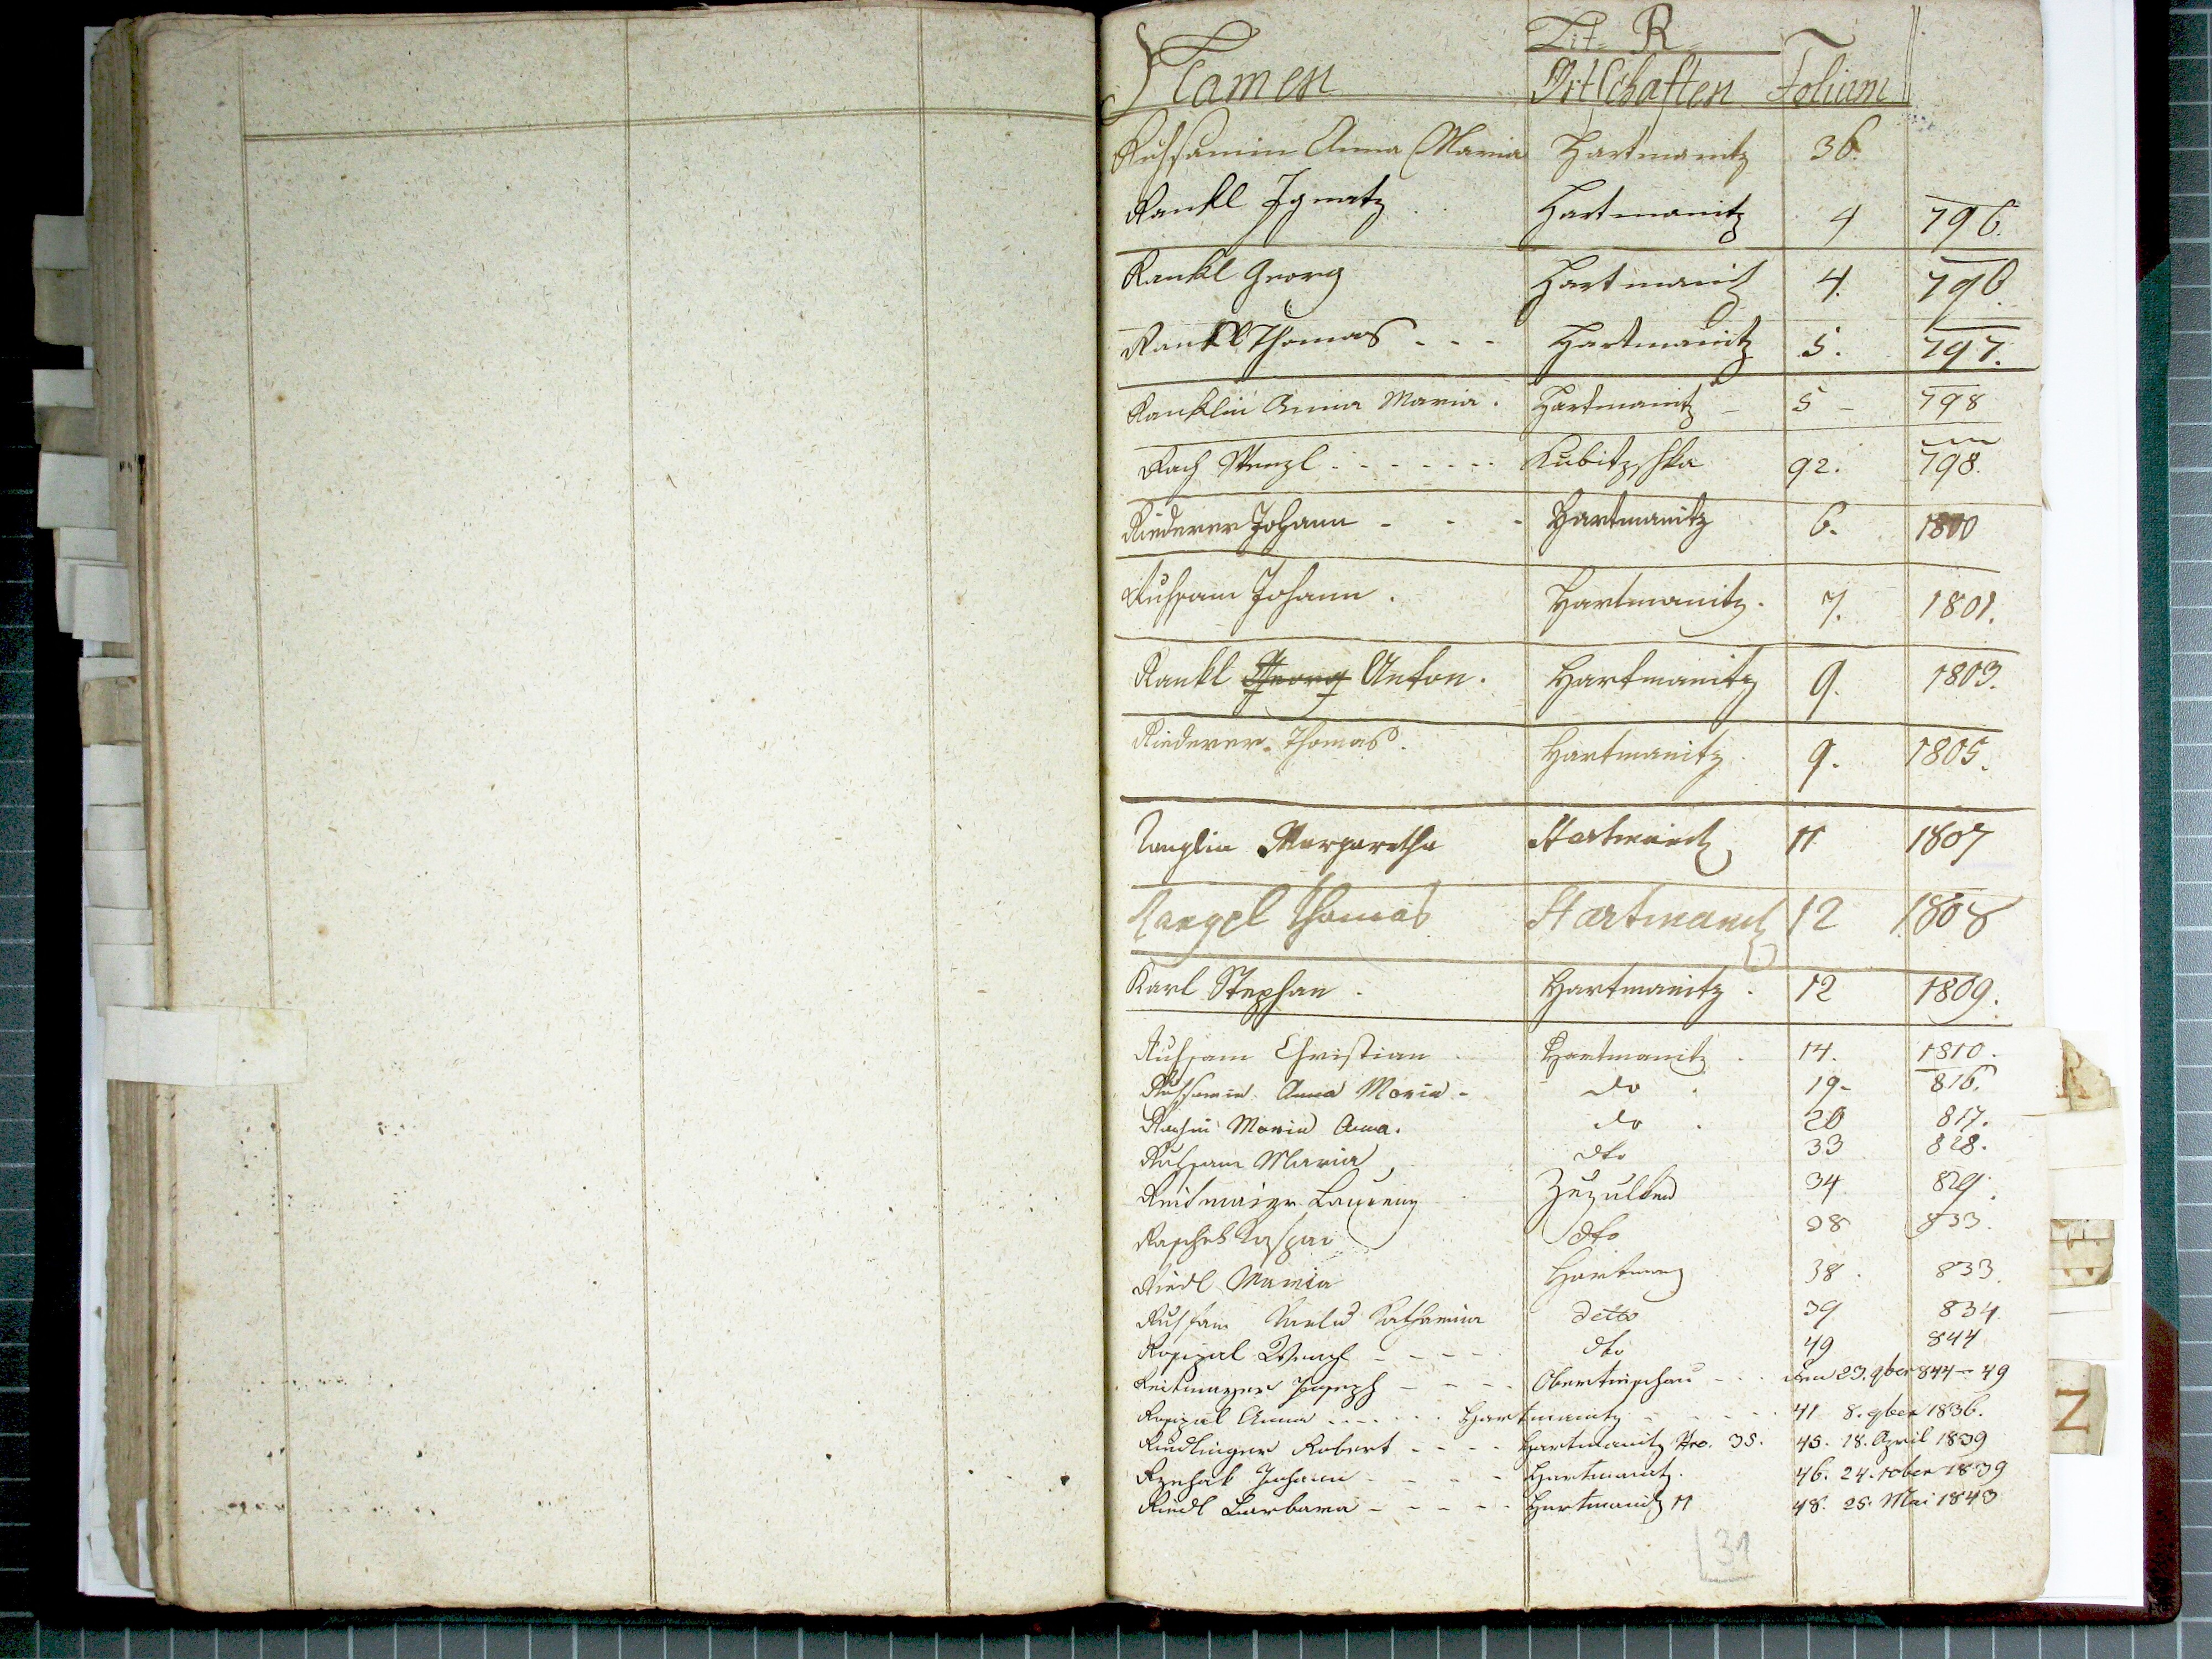 Lit. R
Namen Ortschaften Folium
Ruhsamin Anna Maria Hartmanitz 36.
Rankl Ignatz Hartmanitz 4 796.
Rankl Georg Hartmanitz 4. 796.
Rankl Thomas - - - Hartmanitz 5. 797.
Ranklin Anna Maria. Hartmanitz - 5 - 798
Rach Wenzl - - - - - - Kubitzschka 92. 798.
Riederer Johann - - - Hartmanitz 6. 1800
Ruhsam Johann. Hartmanitz. 7. 1801.
Rankl Georg Anton. Hartmanitz 9. 1803.
Riederer Thomas. Hartmanitz 9. 1805.
Margaretha Hartmanitz 11 1807
Thomas Hartmanitz 12 1808
Karl Stephan. Hartmanitz. 12 1809.
Ruhsam Christian Hartmanitz. 14. 1810.
Ruhsamin Anna Maria - do 19- 816.
Maria Anna. do 20 817.
Ruhsam Maria dto 33 828.
Reitmaier Laurenz 34 829.
Kaspar dto 38 833.
Riedl Maria Hartmaz 38. 833.
Ruhsam Katharina detto 39 834
Rospal Wenzl - - - - dto 49 844
Reitmayer Joseph - - - - Obertieschau - - - den 23. 9ber 844 - 49
Rospal Anna - - - - - - Hartmanitz - - - - - 41 8. 9ber 1836.
Riedlinger Robert - - - - Hartmanitz Nro. 35. 45. 18. April 1839
Rzehak Johann - - - - Hartmanitz. 46. 24. 10ber 1839
Riedl Barbara - - - - Hartmanitz 11 48. 25. Mai 1843
31
Z